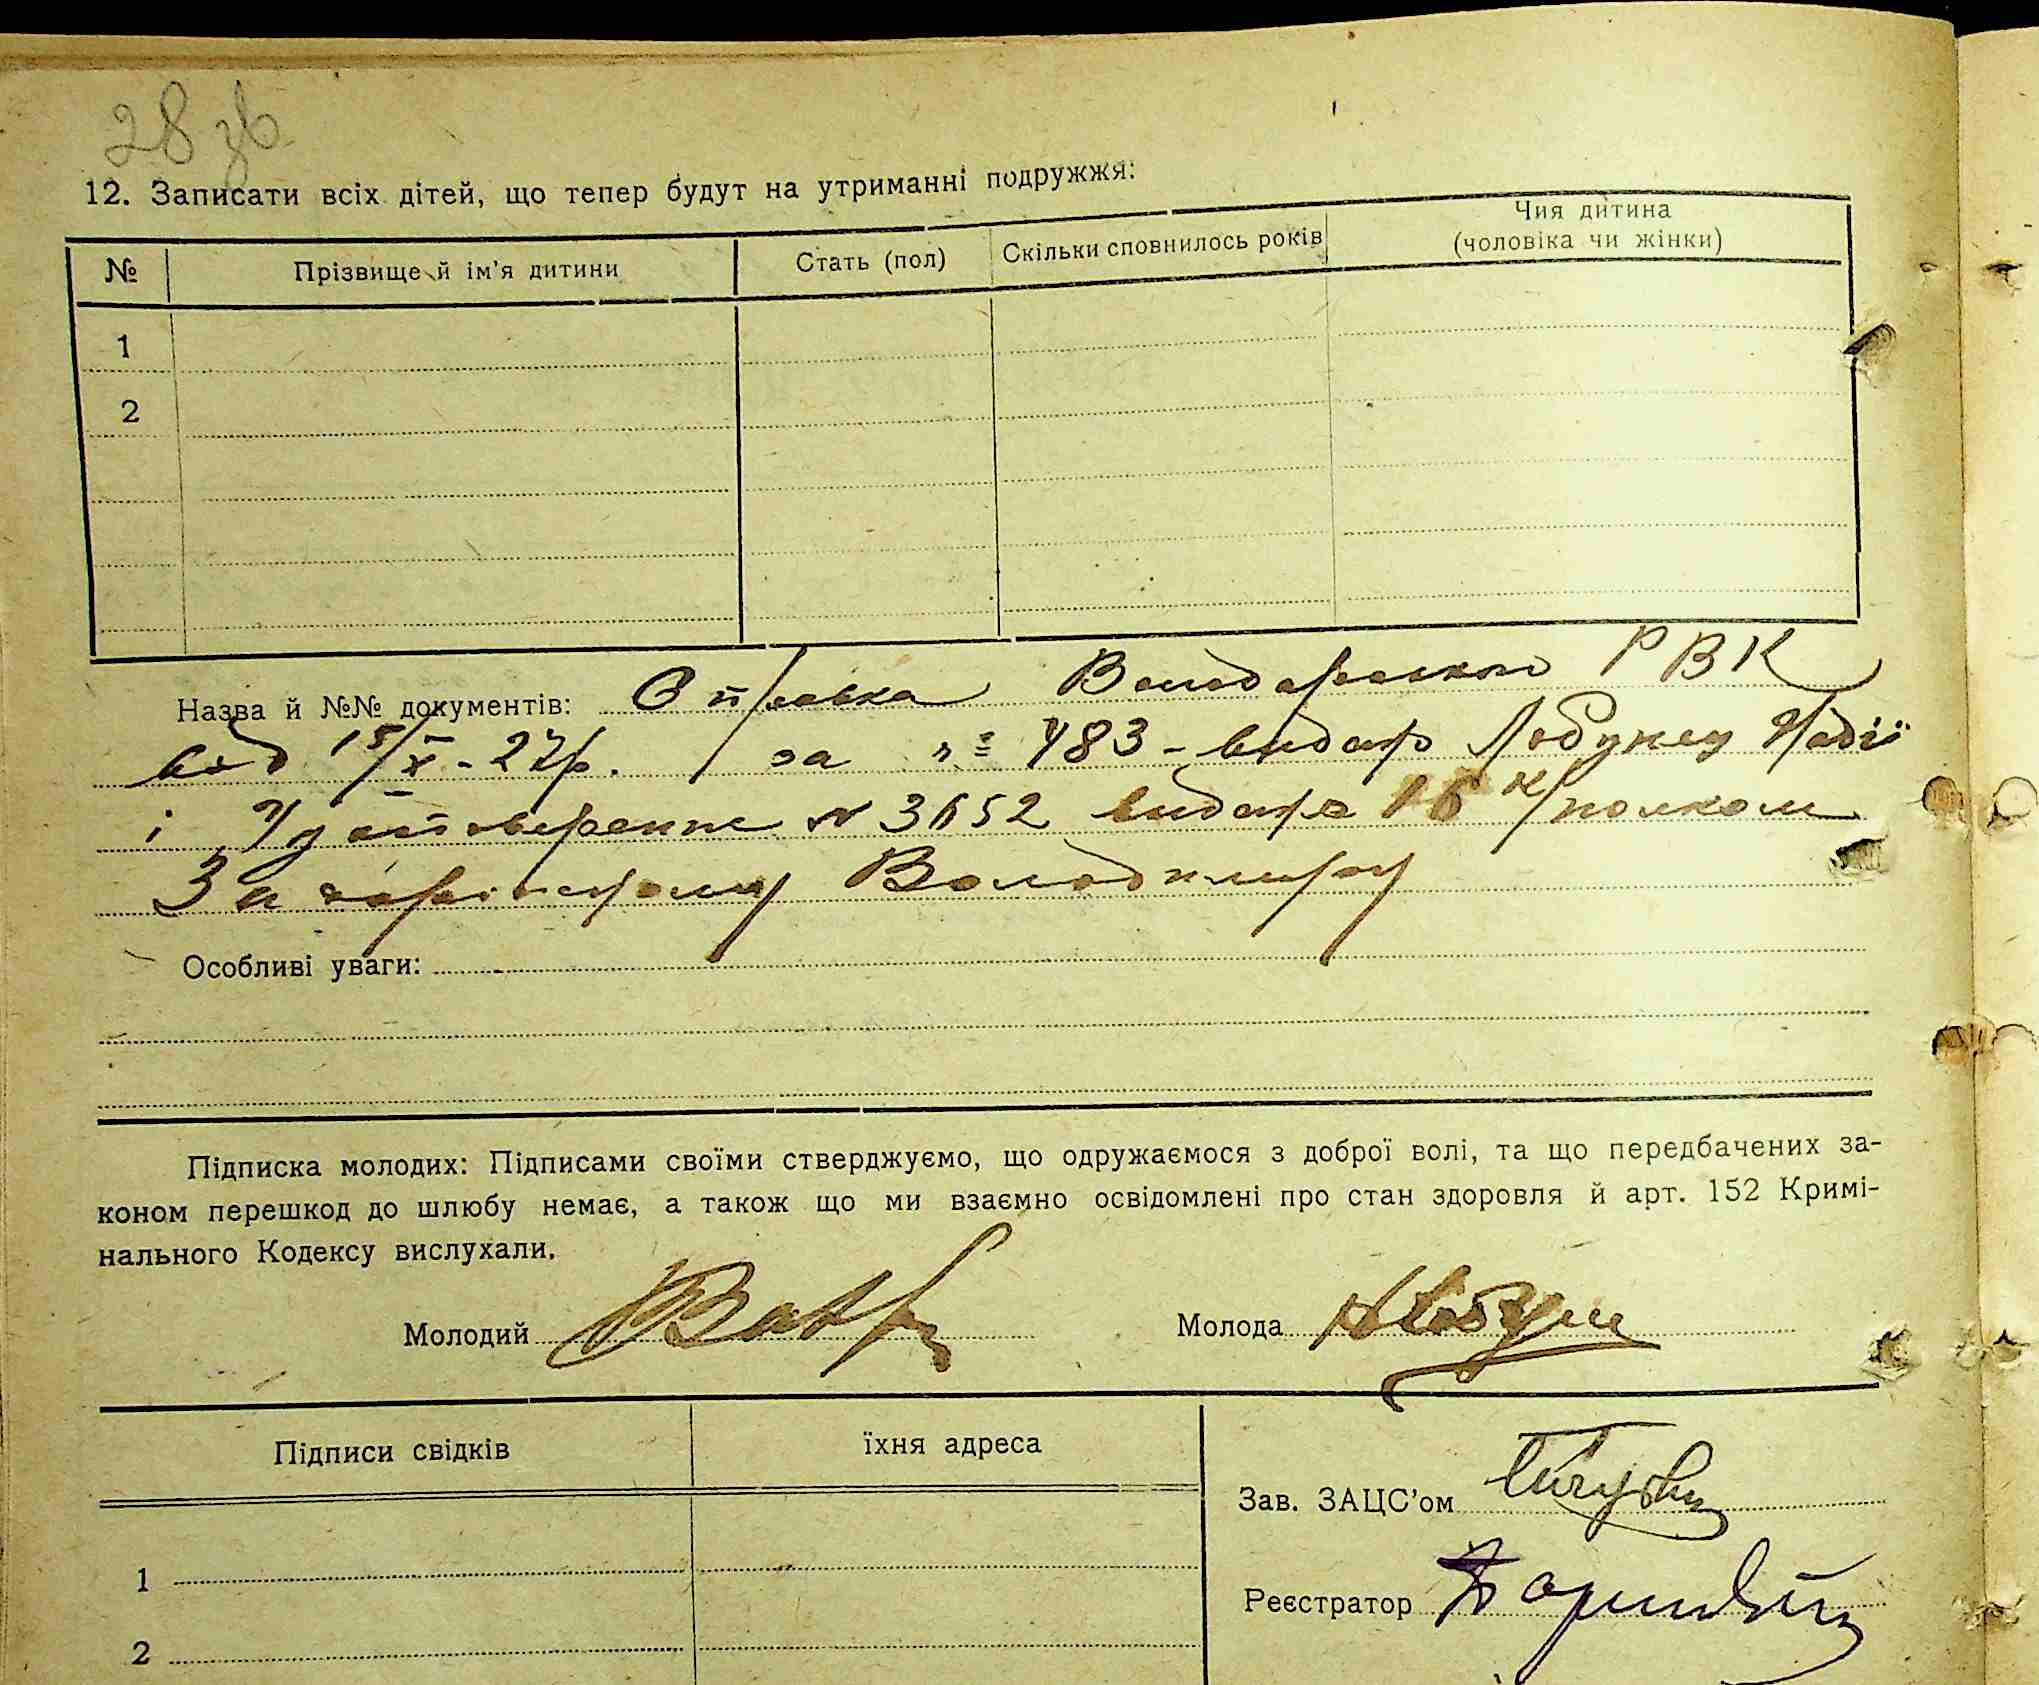 28 зв
12. Записати всіх дітей, що тепер будут на утриманні подружжя:
№ Прізвище й ім'я дитини Стать (пол) Скільки сповнилось років Чия дитина (чоловіка чи жінки)
1
2
Назва й №№ документів: Справка Володарського РВК
від 15/X - 27р. за № 483 - видан Лобунец Надії
і Удостоверение № 3652 видан 16 к/полком
Володимиру
Особливі уваги:
Підписка молодих: Підписами своїми стверджуємо, що одружаємося з доброї волі, та що передбачених за-
коном перешкод до шлюбу немає, а також що ми взаємно освідомлені про стан здоровля й арт. 152 Кримі-
нального Кодексу вислухали.
Молодий Молода
Підписи свідків їхня адреса
Зав. ЗАЦС'ом
Реєстратор
1
2